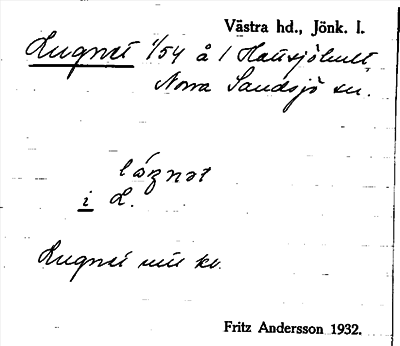 Västra hd., Jönk. l.
Lugnet 1/54 å 1 Hattsjöhult,
Norra Sandsjö sn.
i L.
Lugnet
Fritz Andersson 1932.